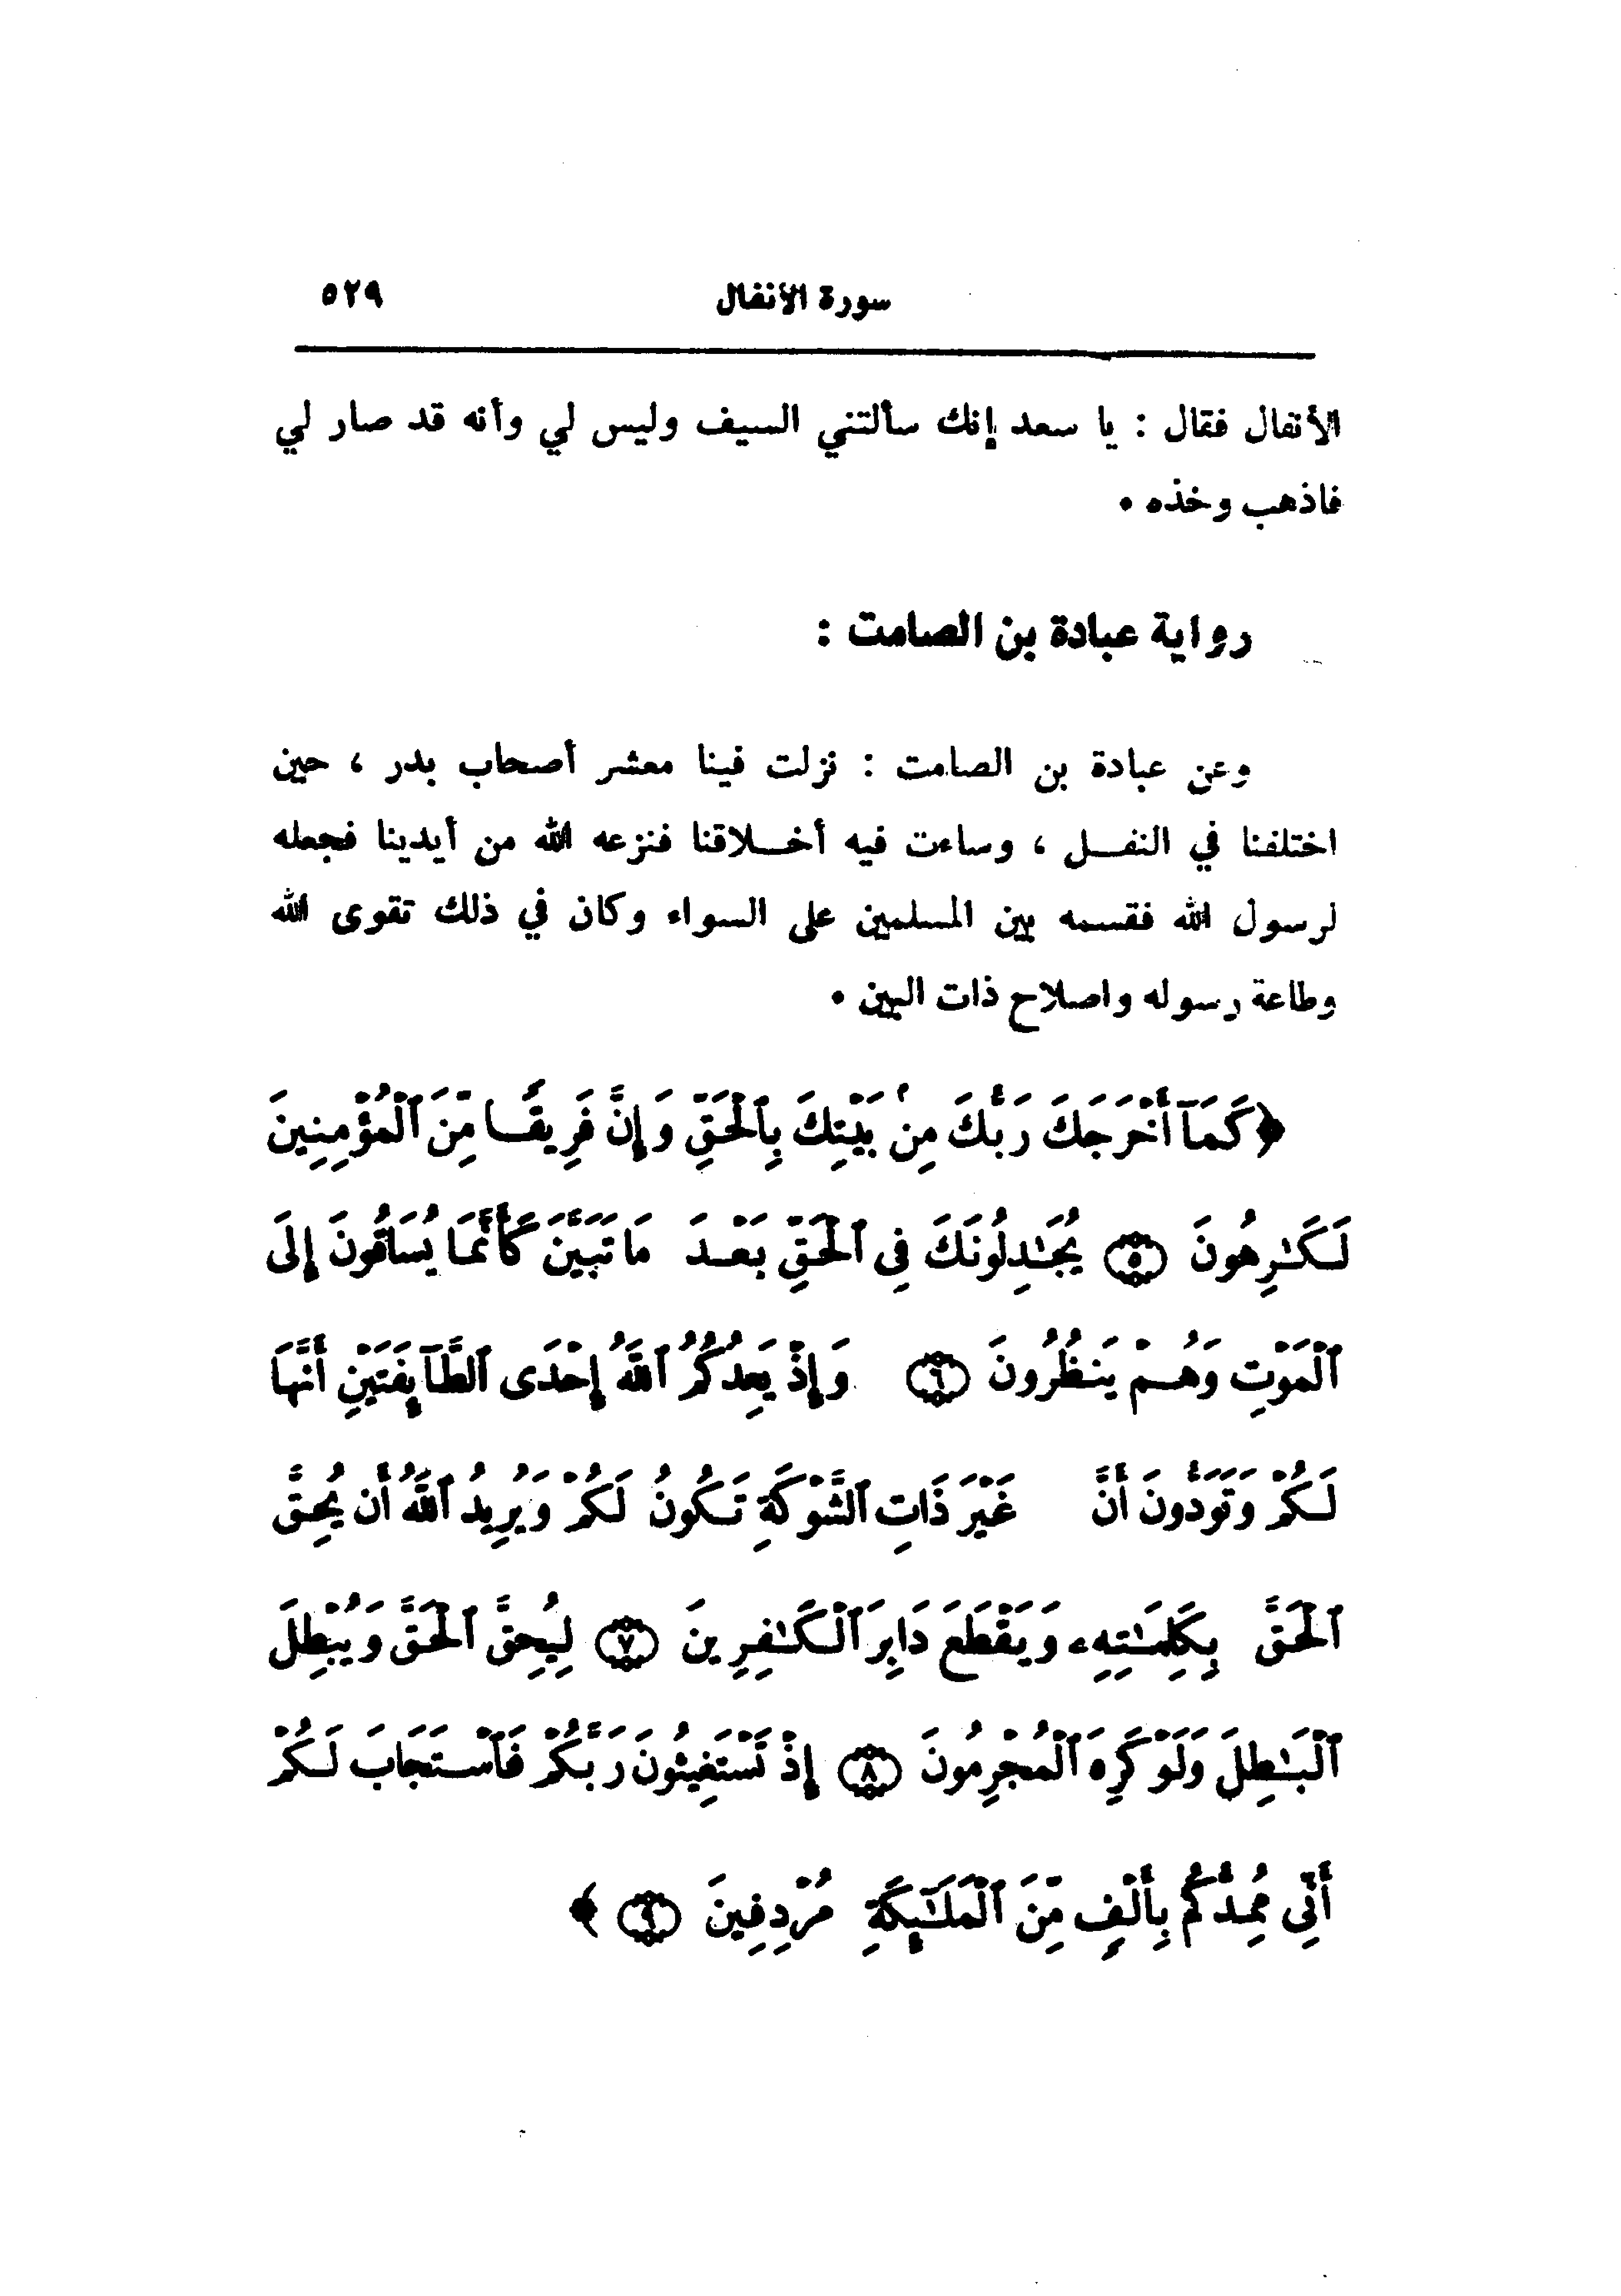 سورة الأنفال ٥٢٩
الأنفال فقال : يا سعد إنك سألتني السيف وليس لي وأنه قد صار لي
فاذهب وخذه ٠
رواية عبادة بن الصامت :
وعن عبادة بن الصامت : نزلت فينا معشر أصحاب بدر ، حين
اختلفنا في النفــل ، وساءت فيه أخــلاقنا فنزعه الله من أيدينا فجعله
لرسول الله فقسمه بين المسلمين على السواء وكان في ذلك تقوى الله
وطاعة رسوله واصلاح ذات البين ٠
﴿ كَمَآ أَخْرَجَكَ رَبُّكَ مِنۢ بَيْتِكَ بِٱلْحَقِّ وَإِنَّ فَرِيقًا مِّنَ ٱلْمُؤْمِنِينَ
لَكَـٰرِهُونَ ۝٥ يُجَـٰدِلُونَكَ فِى ٱلْحَقِّ بَعْدَ مَا تَبَيَّنَ كَأَنَّمَا يُسَاقُونَ إِلَى
ٱلْمَوْتِ وَهُمْ يَنظُرُونَ ۝٦ وَإِذْ يَعِدُكُمُ ٱللَّهُ إِحْدَى ٱلطَّآئِفَتَيْنِ أَنَّهَا
لَكُمْ وَتَوَدُّونَ أَنَّ غَيْرَ ذَاتِ ٱلشَّوْكَةِ تَكُونُ لَكُمْ وَيُرِيدُ ٱللَّهُ أَن يُحِقَّ
ٱلْحَقَّ بِكَلِمَـٰتِهِۦ وَيَقْطَعَ دَابِرَ ٱلْكَـٰفِرِينَ ۝٧ لِيُحِقَّ ٱلْحَقَّ وَيُبْطِلَ
ٱلْبَـٰطِلَ وَلَوْ كَرِهَ ٱلْمُجْرِمُونَ ۝٨ إِذْ تَسْتَغِيثُونَ رَبَّكُمْ فَٱسْتَجَابَ لَكُمْ
أَنِّى مُمِدُّكُم بِأَلْفٍ مِّنَ ٱلْمَلَـٰٓئِكَةِ مُرْدِفِينَ ۝٩ ﴾